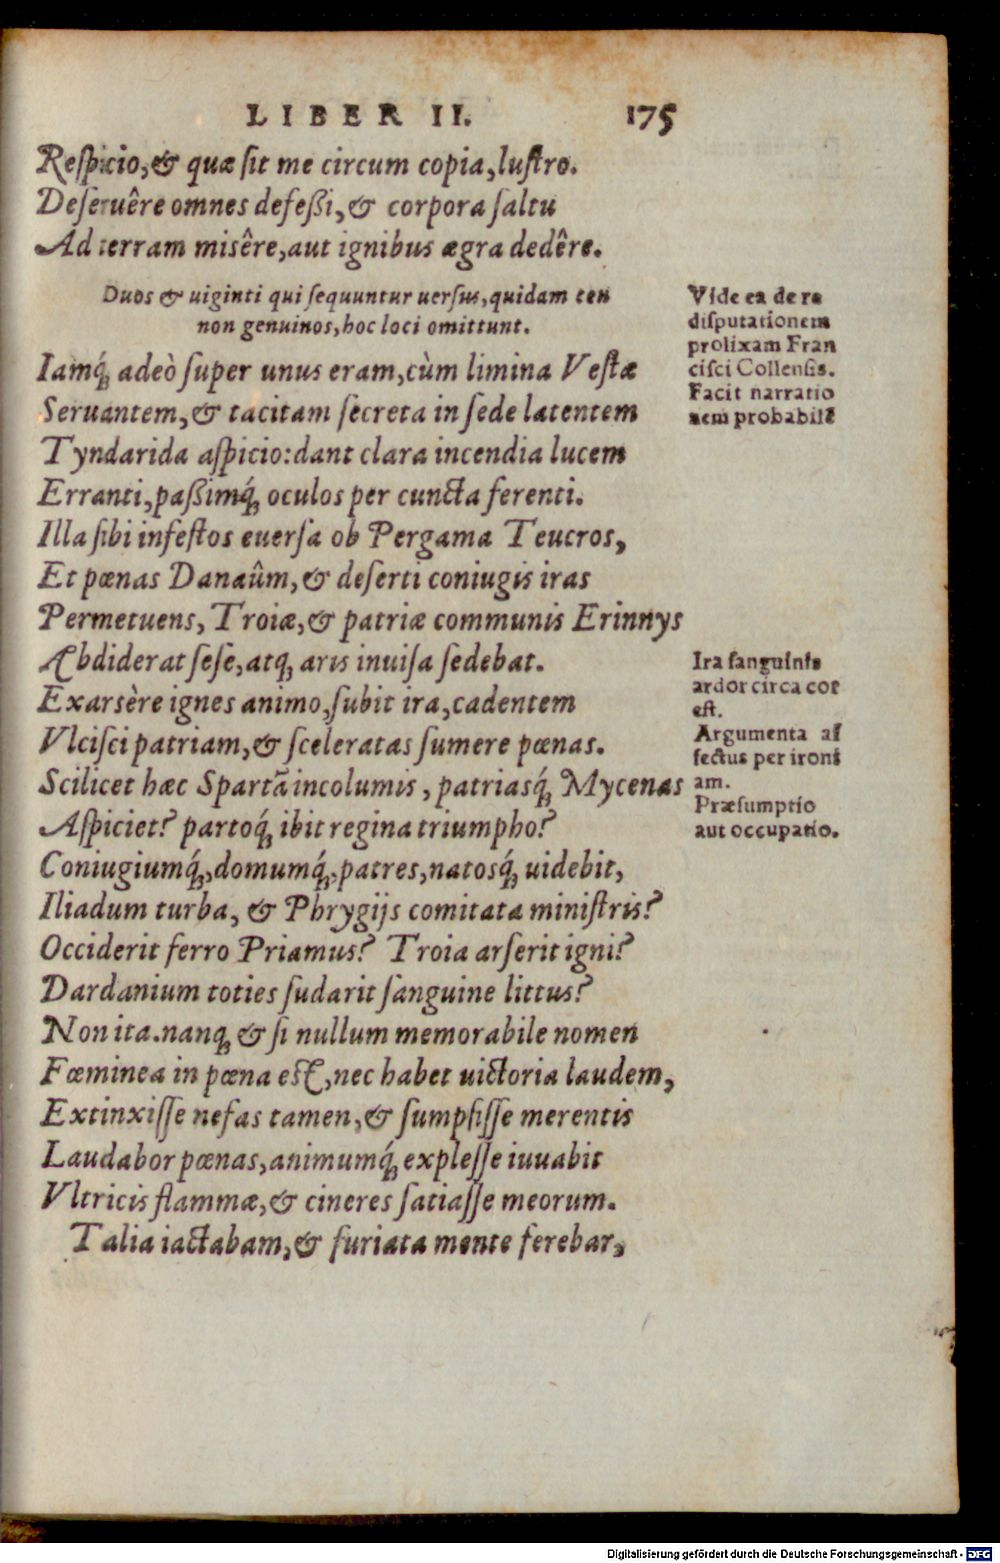 LIBER II. 175
Reſpicio,& quæ ſit me circum copia,luſtro.
Deſeruêre omnes defeßi,& corpora ſaltu
Ad terram misêre,aut ignibus ægra dedêre.
Duos & uiginti qui ſequuntur uerſus,quidam ceu
non genuinos,hoc loci omittunt.
Vide ea de re
diſputationem
prolixam Fran
ciſci Collenſis.
Facit narratio
nem probabilē
Iamq́; adeò ſuper unus eram,cùm limina Veſtæ
Seruantem,& tacitam ſecreta in ſede latentem
Tyndarida aſpicio:dant clara incendia lucem
Erranti,paßimq́; oculos per cuncta ferenti.
Illa ſibi infeſtos euerſa ob Pergama Teucros,
Et pœnas Danaûm,& deſerti coniugis iras
Permetuens, Troiæ,& patriæ communis Erinnys
Abdiderat ſeſe,atq; aris inuiſa ſedebat.
Exarsère ignes animo,ſubit ira,cadentem
Vlciſci patriam,& ſceleratas ſumere pœnas.
Scilicet hæc Spartā incolumis, patriasq́; Mycenas
Aſpiciet? partoq́; ibit regina triumpho?
Ira ſanguinis
ardor circa cor
eſt.
Argumenta af
fectus per ironi
am.
Præſumptio
aut occupatio.
Coniugiumq́;,domumq́;,patres,natosq́; uidebit,
Iliadum turba, & Phrygijs comitata miniſtris?
Occiderit ferro Priamus? Troia arſerit igni?
Dardanium toties ſudarit ſanguine littus?
Non ita.nanq; & ſi nullum memorabile nomen
Fœminea in pœna eſt,nec habet uictoria laudem,
Extinxiſſe nefas tamen,& ſumpſiſſe merentis
Laudabor pœnas,animumq́; expleſſe iuuabit
Vltricis flammæ,& cineres ſatiaſſe meorum.
Talia iactabam,& furiata mente ferebar,
Digitalisierung gefördert durch die Deutsche Forschungsgemeinschaft - DFG